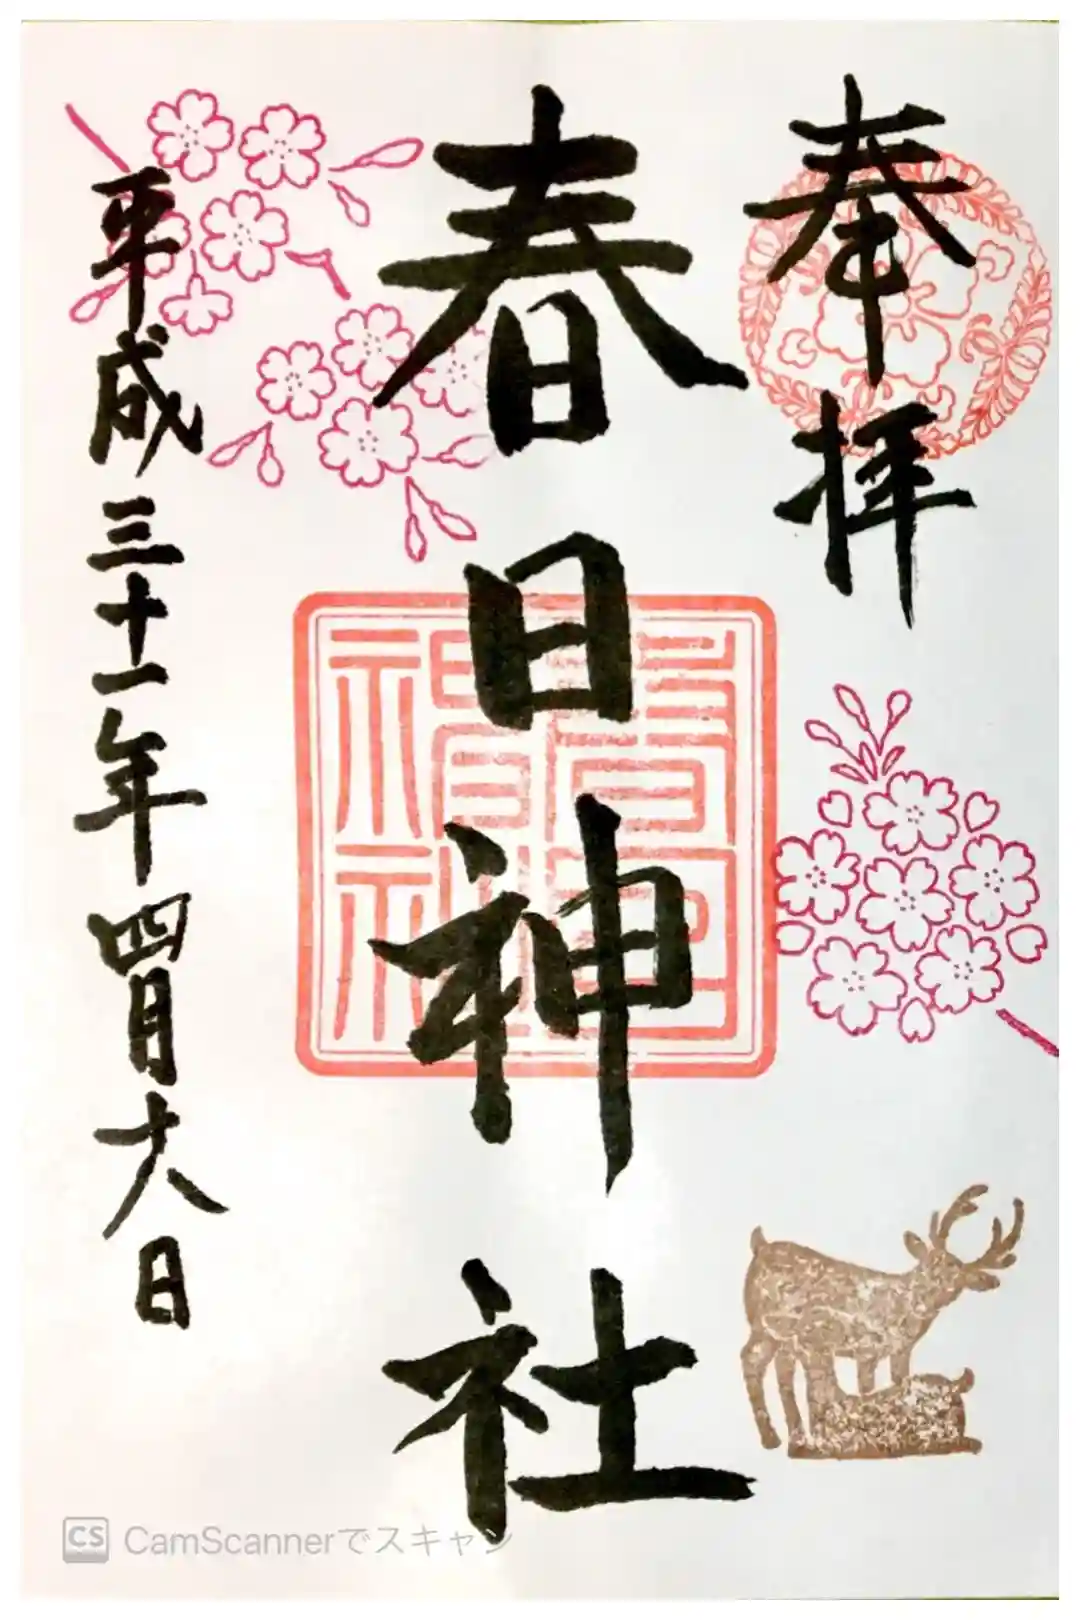 奉拝
春日神社
春日神社
平成三十一年四月十八日
CS CamScannerでスキャン